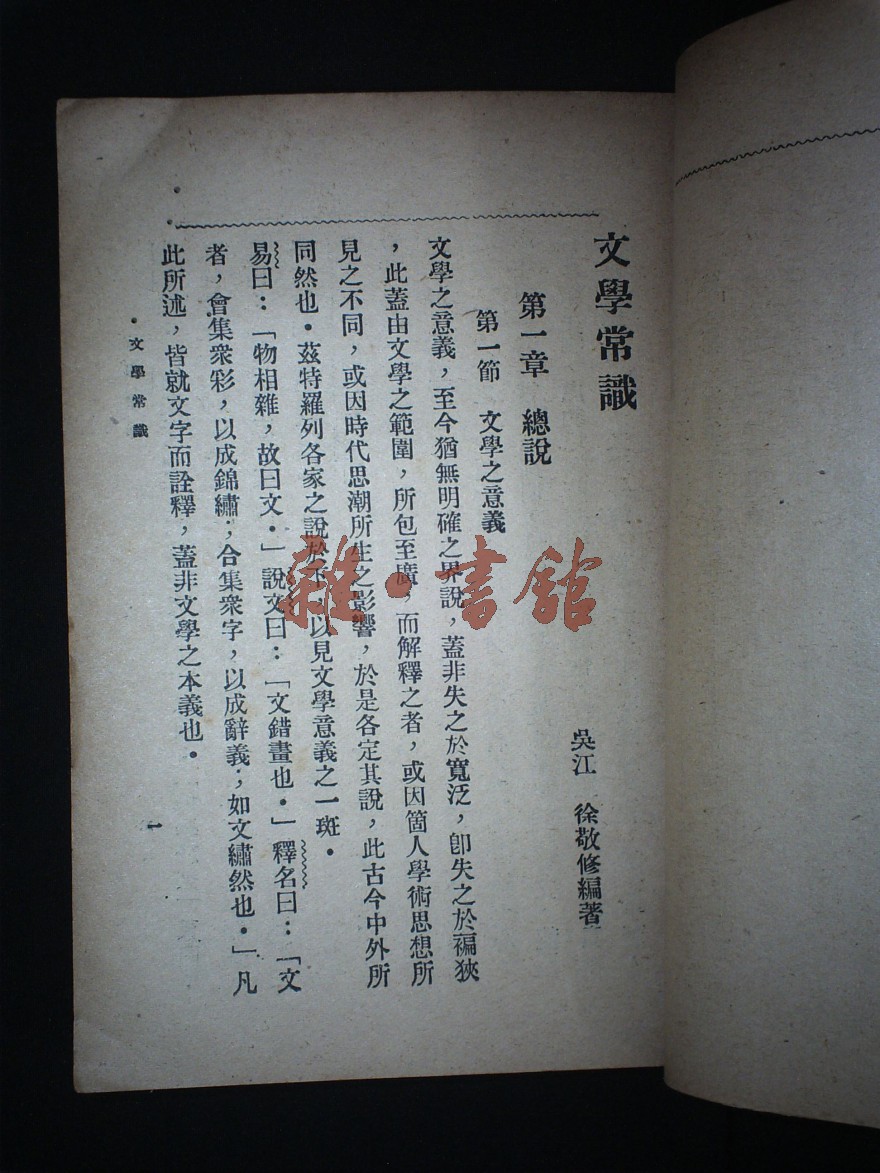 文學常識
吳江　徐敬修編著
第一章　總說
第一節　文學之意義
文學之意義，至今猶無明確之界說，蓋非失之於寬泛，卽失之於褊狹
，此蓋由文學之範圍，所包至廣，而解釋之者，或因箇人學術思想所
見之不同，或因時代思潮所生之影響，於是各定其說，此古今中外所
同然也．茲特羅列各家之說於下以見文學意義之一斑．
易曰：「物相雜，故曰文．」說文曰：「文錯畫也．」釋名曰：「文
者，會集衆彩，以成錦繡；合集衆字，以成辭義；如文繡然也．」凡
此所述，皆就文字而詮釋，蓋非文學之本義也．
．文學常識
一
雜・書館